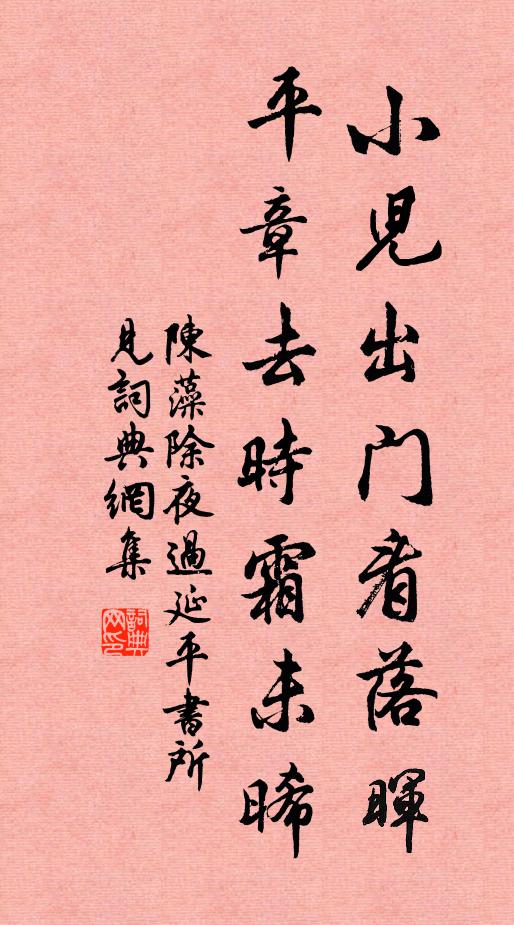 小兒出門看落暉
平章去時霜未晞
陳藻除夜過延平書所
見詞典網集
詞典
网印